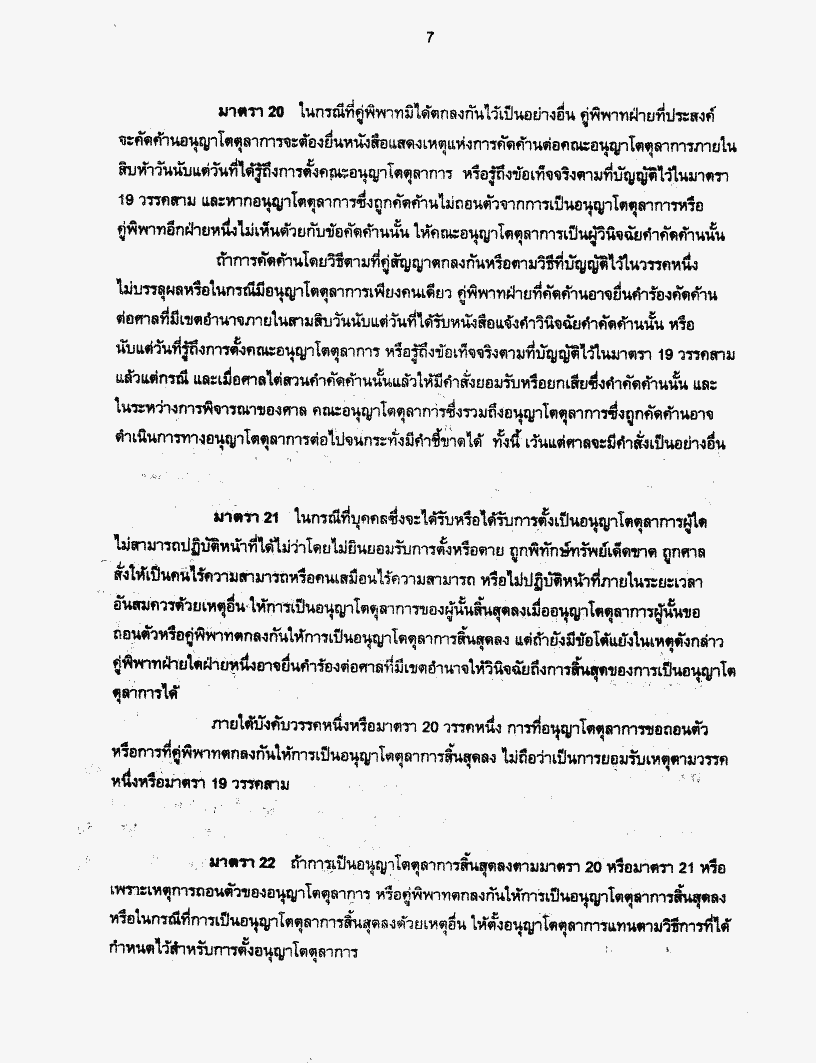 7
มาตรา 20 ในกรณีที่คู่พิพาทมิได้ตกลงกันไว้เป็นอย่างอื่น คู่พิพาทฝ่ายที่ประสงค์
จะคัดค้านอนุญาโตตุลาการจะต้องยื่นหนังสือแสดงเหตุแห่งการคัดค้านต่อคณะอนุญาโตตุลาการภายใน
สิบห้าวันนับแต่วันที่ได้รู้ถึงการตั้งคณะอนุญาโตตุลาการ หรือรู้ถึงข้อเท็จจริงตามที่บัญญัติไว้ในมาตรา
19 วรรคสาม และหากอนุญาโตตุลาการซึ่งถูกคัดค้านไม่ถอนตัวจากการเป็นอนุญาโตตุลาการหรือ
คู่พิพาทอีกฝ่ายหนึ่งไม่เห็นด้วยกับข้อคัดค้านนั้น ให้คณะอนุญาโตตุลาการเป็นผู้วินิจฉัยคำคัดค้านนั้น
ถ้าการคัดค้านโดยวิธีตามที่คู่สัญญาตกลงกันหรือตามวิธีที่บัญญัติไว้ในวรรคหนึ่ง
ไม่บรรลุผลหรือในกรณีมีอนุญาโตตุลาการเพียงคนเดียว คู่พิพาทฝ่ายที่คัดค้านอาจยื่นคำร้องคัดค้าน
ต่อศาลที่มีเขตอำนาจภายในสามสิบวันนับแต่วันที่ได้รับหนังสือแจ้งคำวินิจฉัยคำคัดค้านนั้น หรือ
นับแต่วันที่รู้ถึงการตั้งคณะอนุญาโตตุลาการ หรือรู้ถึงข้อเท็จจริงตามที่บัญญัติไว้ในมาตรา 19 วรรคสาม
แล้วแต่กรณี และเมื่อศาลไต่สวนคำคัดค้านนั้นแล้วให้มีคำสั่งยอมรับหรือยกเสียซึ่งคำคัดค้านนั้น และ
ในระหว่างการพิจารณาของศาล คณะอนุญาโตตุลาการซึ่งรวมถึงอนุญาโตตุลาการซึ่งถูกคัดค้านอาจ
ดำเนินการทางอนุญาโตตุลาการต่อไปจนกระทั่งมีคำชี้ขาดได้ ทั้งนี้ เว้นแต่ศาลจะมีคำสั่งเป็นอย่างอื่น
มาตรา 21 ในกรณีที่บุคคลซึ่งจะได้รับหรือได้รับการตั้งเป็นอนุญาโตตุลาการผู้ใด
ไม่สามารถปฏิบัติหน้าที่ได้ไม่ว่าโดยไม่ยินยอมรับการตั้งหรือตาย ถูกพิทักษ์ทรัพย์เด็ดขาด ถูกศาล
สั่งให้เป็นคนไร้ความสามารถหรือคนเสมือนไร้ความสามารถ หรือไม่ปฏิบัติหน้าที่ภายในระยะเวลา
อันสมควรด้วยเหตุอื่น ให้การเป็นอนุญาโตตุลาการของผู้นั้นสิ้นสุดลงเมื่ออนุญาโตตุลาการผู้นั้นขอ
ถอนตัวหรือคู่พิพาทตกลงกันให้การเป็นอนุญาโตตุลาการสิ้นสุดลง แต่ถ้ายังมีข้อโต้แย้งในเหตุดังกล่าว
คู่พิพาทฝ่ายใดฝ่ายหนึ่งอาจยื่นคำร้องต่อศาลที่มีเขตอำนาจให้วินิจฉัยถึงการสิ้นสุดของการเป็นอนุญาโต
ตุลาการได้
ภายใต้บังคับวรรคหนึ่งหรือมาตรา 20 วรรคหนึ่ง การที่อนุญาโตตุลาการขอถอนตัว
หรือการที่คู่พิพาทตกลงกันให้การเป็นอนุญาโตตุลาการสิ้นสุดลง ไม่ถือว่าเป็นการยอมรับเหตุตามวรรค
หนึ่งหรือมาตรา 19 วรรคสาม
มาตรา 22 ถ้าการเป็นอนุญาโตตุลาการสิ้นสุดลงตามมาตรา 20 หรือมาตรา 21 หรือ
เพราะเหตุการถอนตัวของอนุญาโตตุลาการ หรือคู่พิพาทตกลงกันให้การเป็นอนุญาโตตุลาการสิ้นสุดลง
หรือในกรณีที่การเป็นอนุญาโตตุลาการสิ้นสุดลงด้วยเหตุอื่น ให้ตั้งอนุญาโตตุลาการแทนตามวิธีการที่ได้
กำหนดไว้สำหรับการตั้งอนุญาโตตุลาการ